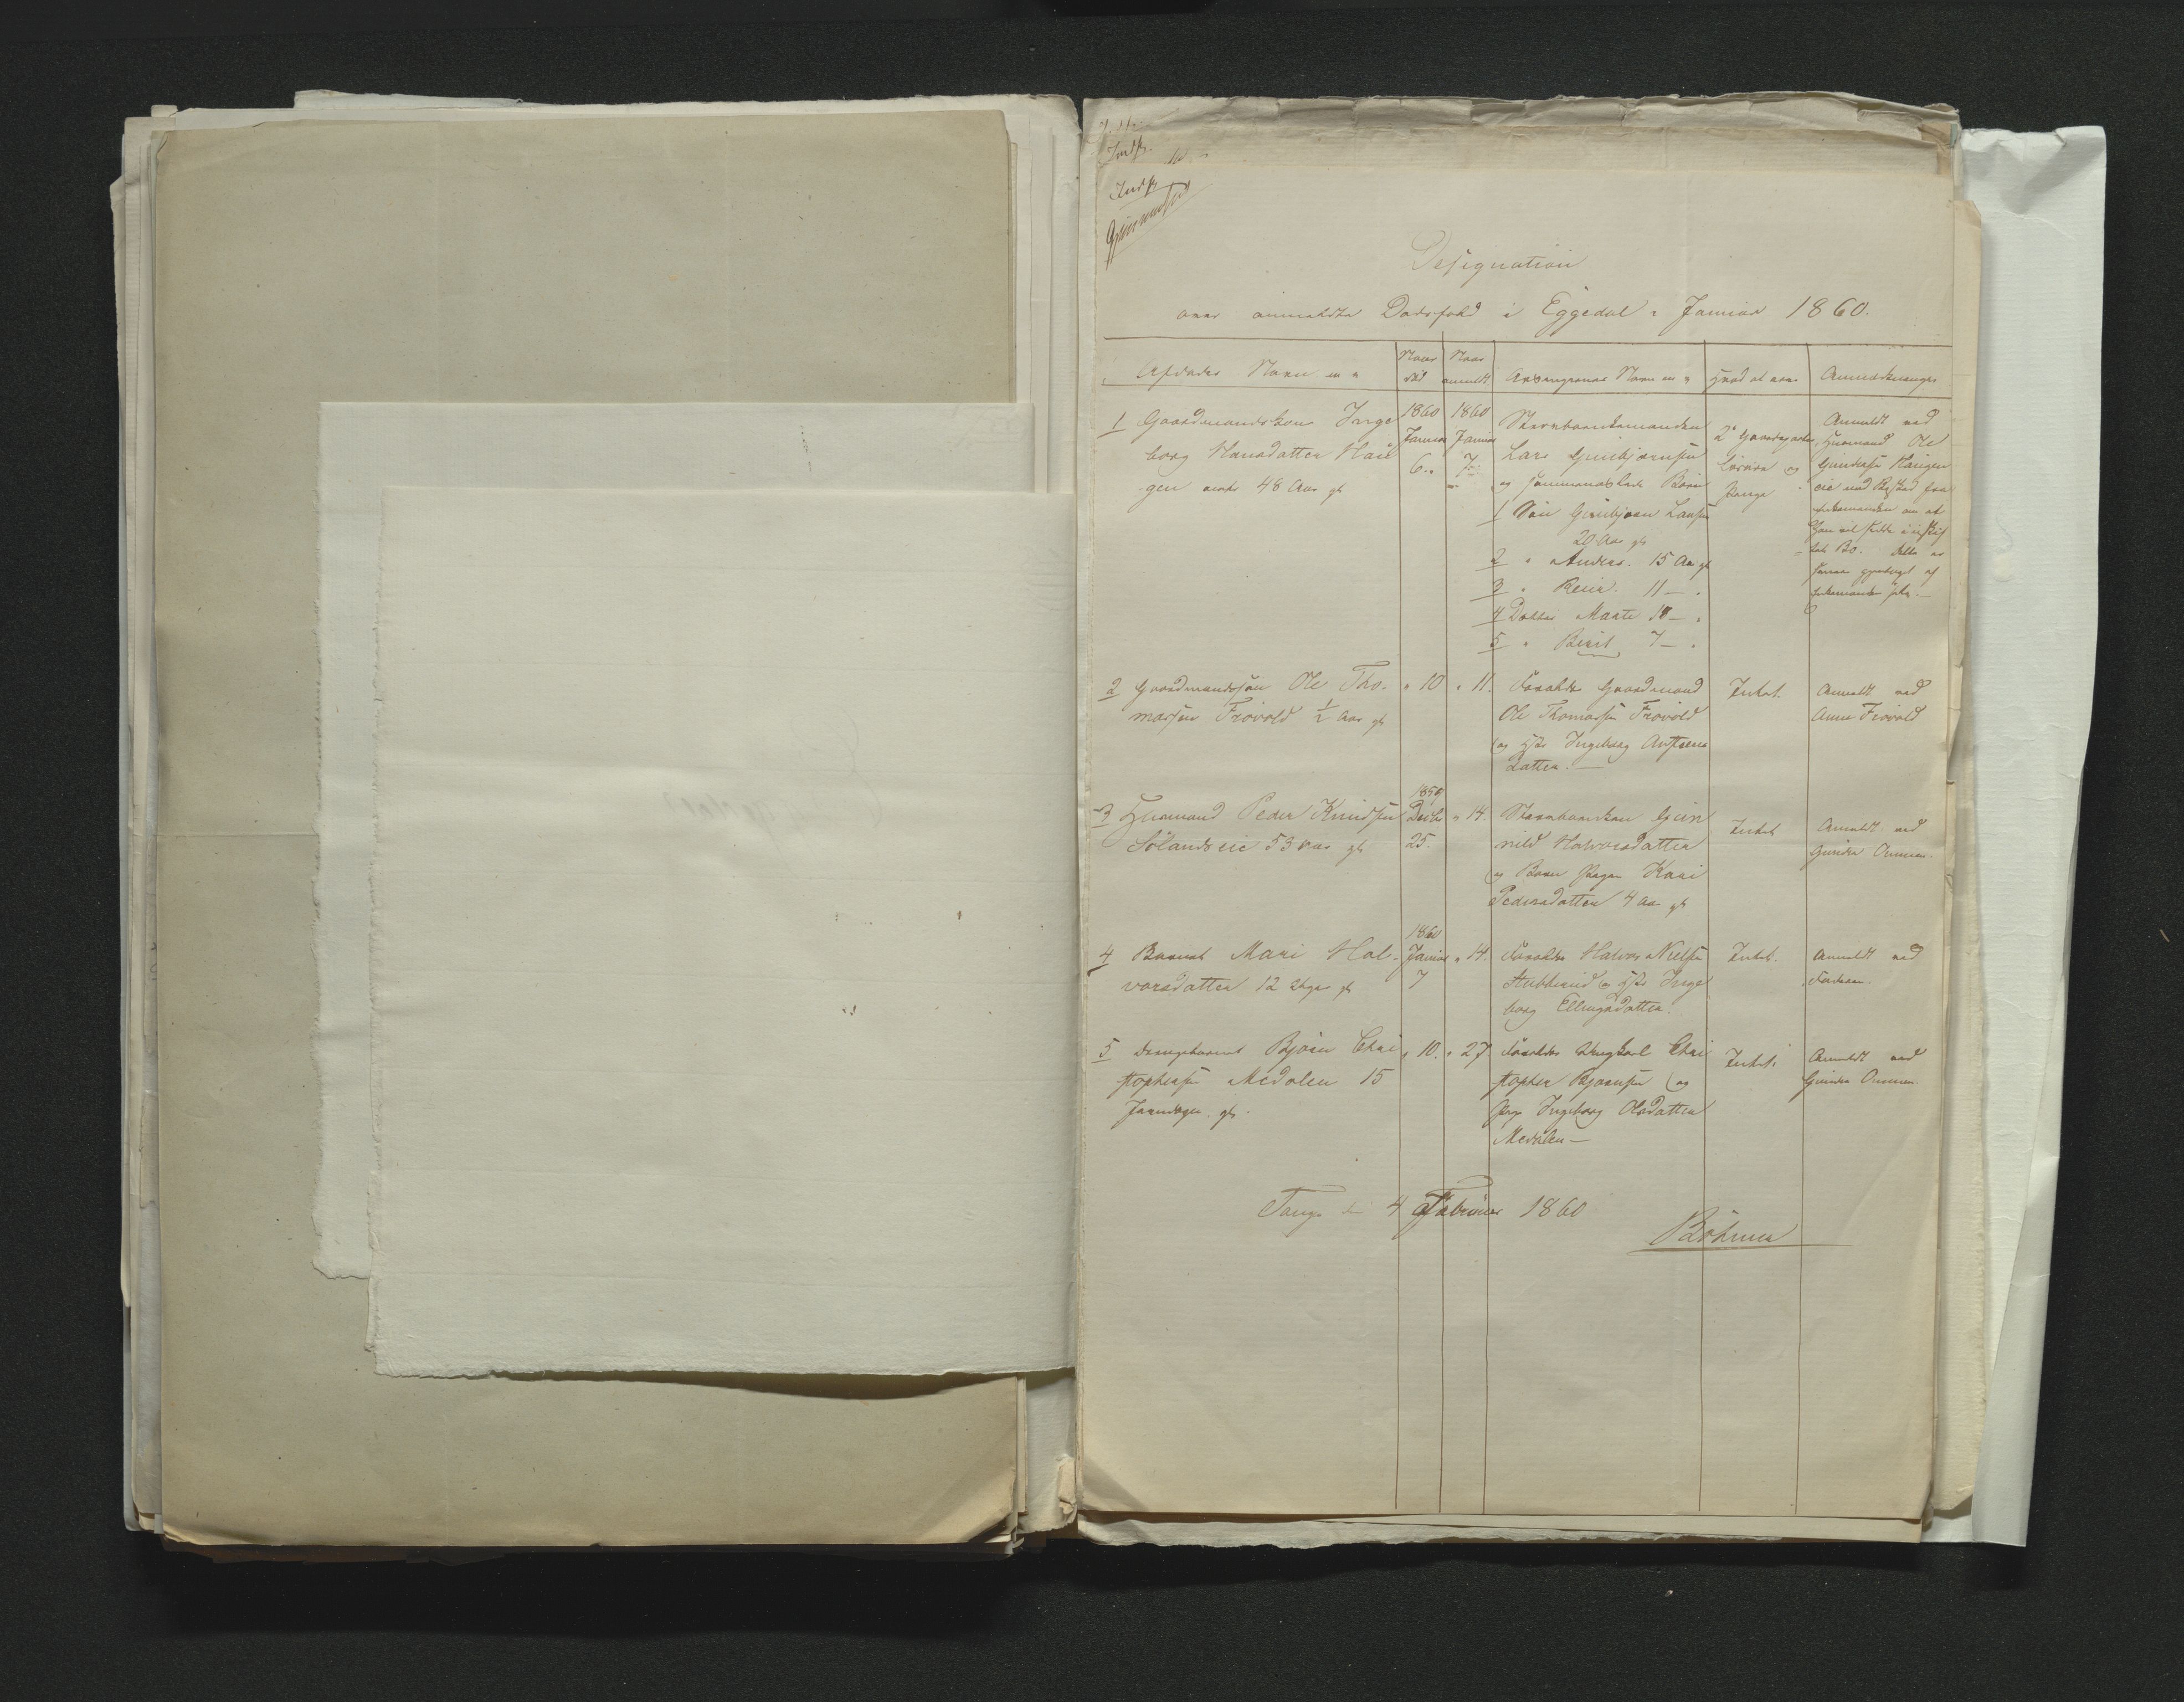 Indf.
Indf.
Gjennemseet
Designation
over anmeldte Dødsfald i Eggedal i Januar 1860.
Afdødes Navn m. v.
Naar død
Naar anmeldt
Arvingernes Navn m. v.
Hvad at arve
Anmærkninger
1 Gaardmandskone Inge
borg Hansdatter Hau
gen 48 Aar gl
1860
Januar
6.
1860
Januar
7.
Stervboenkemanden
Lars Gunbjørnsen
og sammenavlede Børn
1 Søn Gunbjørn Larsen
20 Aar gl
2 " Andreas. 15 Aar gl
3 " Reier. 11 — "
4 Datter Marte 18 — "
5 " Berit 7 — "
2 Gaardparter
Løsøre og
Penge
Anmeldt ved
Huusmand Ole
Gundersen Haugen
eie med Besked fra
Enkemanden om at
Han vil sidde i uskif
tet Bo. Dette er
senere gjentaget af
Enkemanden selv. —
2 Gaardmandssøn Ole Tho-
massen Frøvold ½ Aar gl
" 10
" 11.
Forældre Gaardmand
Ole Thomassen Frøvold
og Hst Ingeborg Anstens
Datter. —
Intet.
Anmeldt ved
Anne Frøvold
3 Huusmand Peder Knudsen
Sølandseie 53 Aar gl
1859
Decbr
25.
" 14.
Stervboenken Gun
nild Halvorsdatter
og Barn Pigen Kari
Pedersdatter 4 Aar gl
Intet
Anmeldt ved
Gunder Ommen.
4 Barnet Mari Hal-
vorsdatter 12 Uger gl
1860
Januar
7
" 14.
Forældre Halvor Nielsen
Stubberud og Hst Inge
borg Ellingsdatter.
Intet.
Anmeldt ved
Faderen.
5 Drengebarnet Bjørn Chri
stophersen Medalen 15
Januar gl.
" 10.
" 27.
Forældre Ungkarl Chri
stopher Bjørnsen og
Pige Ingeborg Olsdatter
Medalen —
Intet.
Anmeldt ved
Gunder Ommen.
4 Februar 1860
Böhmer